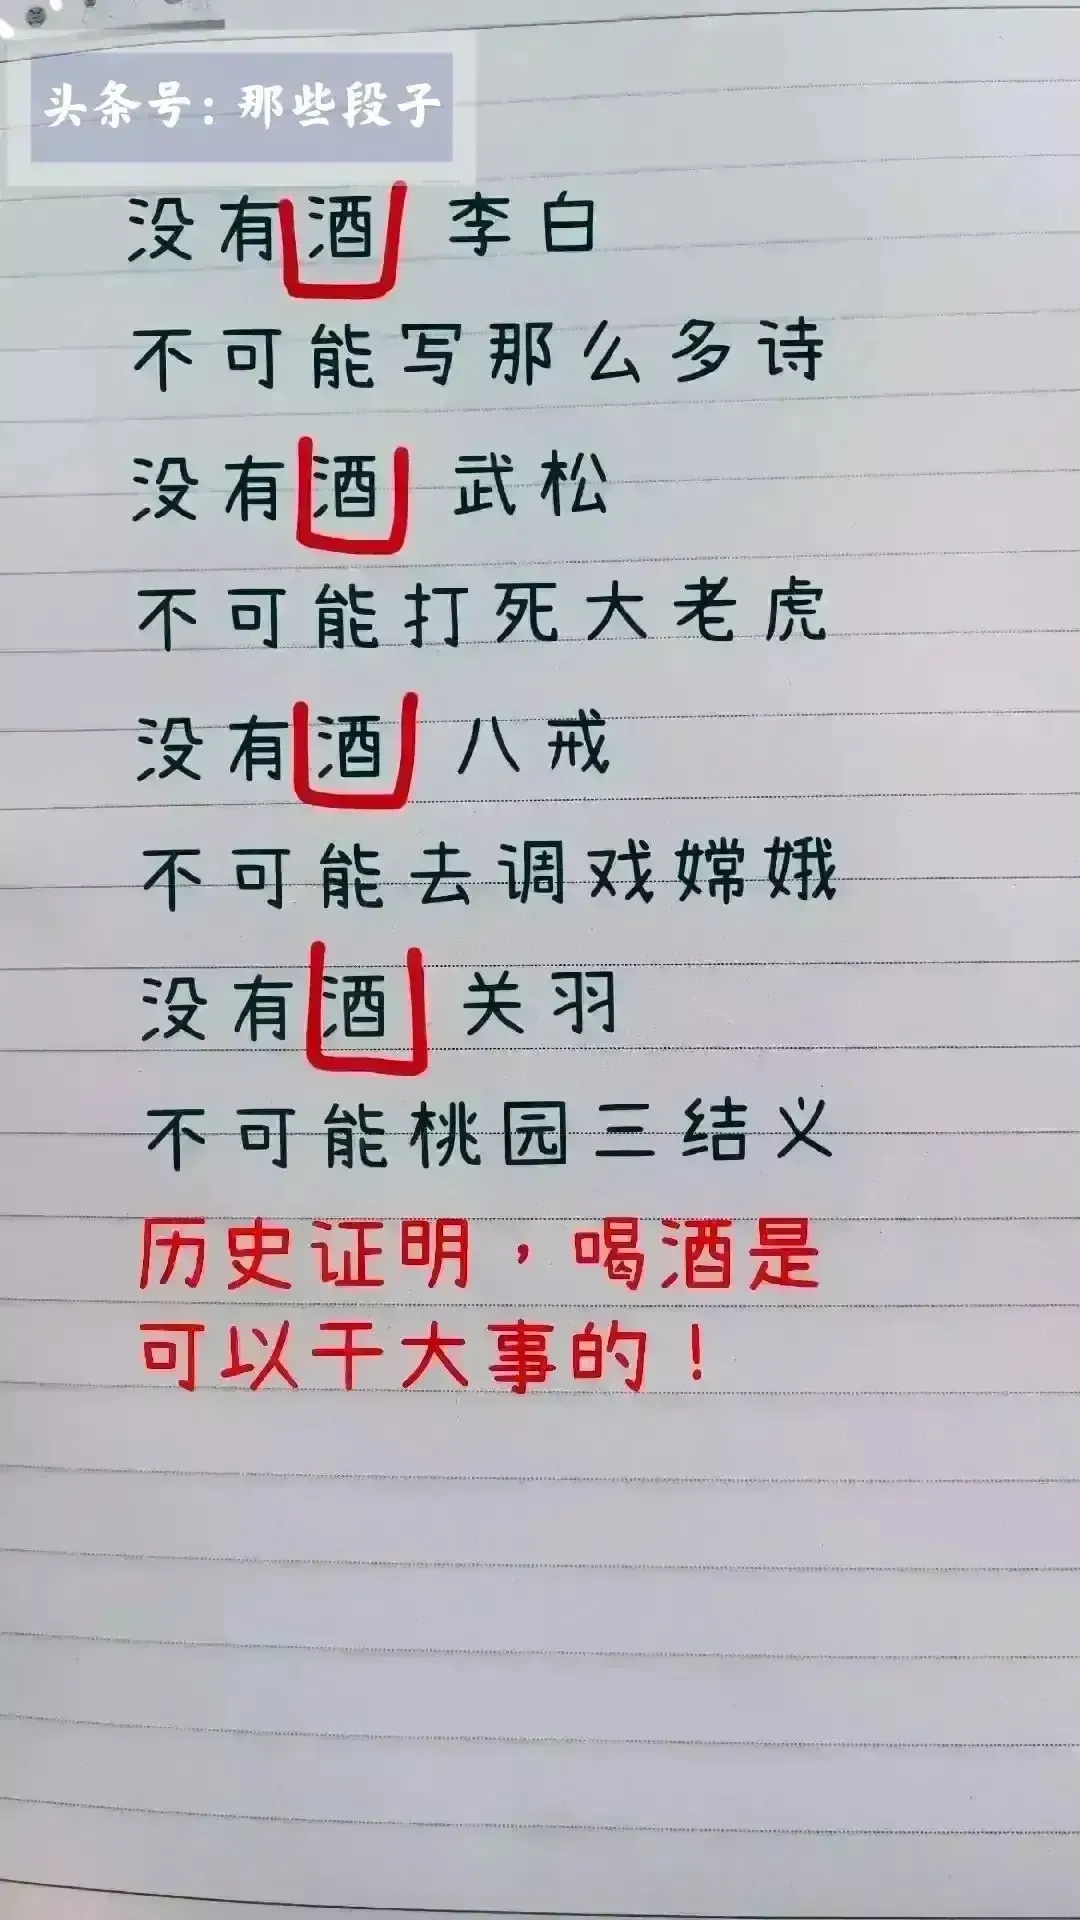 头条号：那些段子
没有酒 李白
不可能写那么多诗
没有酒 武松
不可能打死大老虎
没有酒 八戒
不可能去调戏嫦娥
没有酒 关羽
不可能桃园三结义
历史证明，喝酒是
可以干大事的！